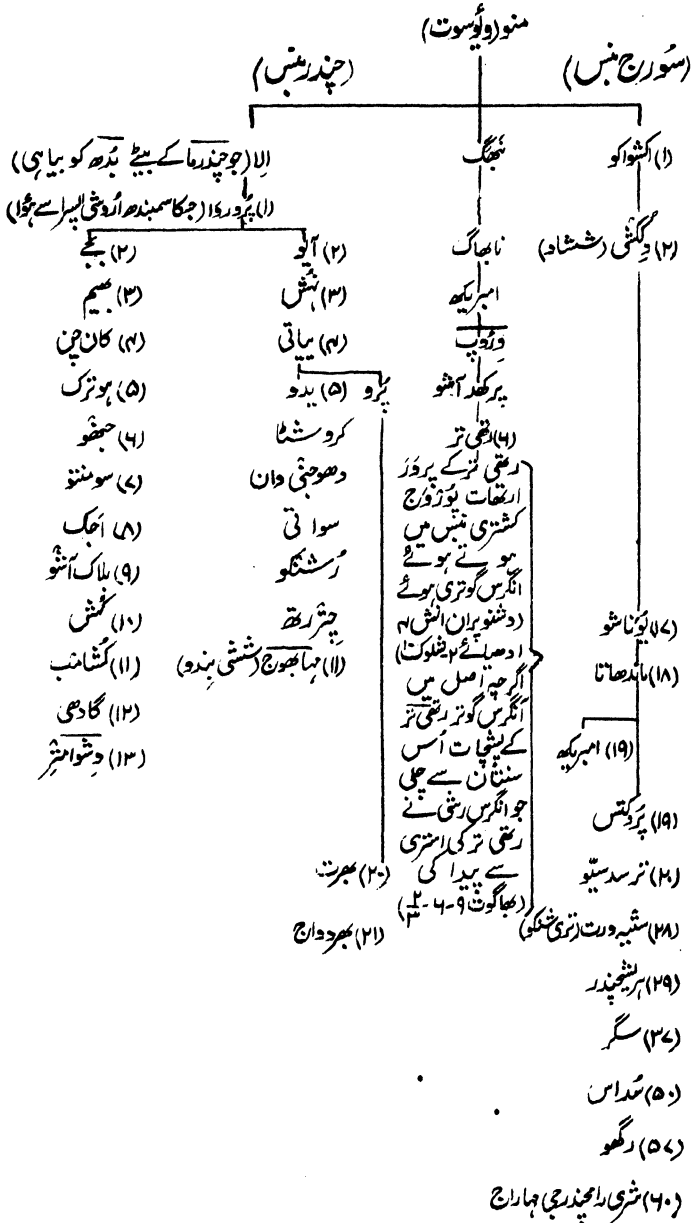 منو (وئوسوت)
(سورج بنس)
(چندر بنس)
(۱) اکشواکو
(۲) وِکُکشی (ششاد)
(۱۷) یُوناشو
(۱۸) ماندھاتا
(۱۹) امبریکھ
(۱۹) پُرُوکتس
(۲۰) ترسدسیّو
(۲۸) ستیہ ورت (تری شنکو)
(۲۹) ہریشچندر
(۳۷) سگر
(۵۰) سُداس
(۵۷) رگھو
(۶۰) شری رامچندرجی مہاراج
نبھگ
نابھاگ
امبریکھ
وِرُوپ
پرکھد آشو
(۶) رتھی تر
رتھی تر کے پرور
ارتھات پُوروَج
کشتری بنس میں
ہوتے ہوئے
انگرس گوتری ہوئے
(وشنو پران انش ۴
ادھیائے ۲ شلوک ۱)
اگرچہ اصل میں
انگرس گوتر رتھی تر
کے پشچات اُس
سنتان سے چلی
جو انگرس رشی نے
رتھی تر کی استری
سے پیدا کی
(بھاگوت ۹-۶-۲/۳)
اِلا (جو چندرما کے بیٹے بُدھ کو بیاہی)
(۱) پُروروا (جسکا سمبندھ اُروشی اپسرا سے ہُوا)
(۲) آیُو
(۳) نہُش
(۴) ییاتی
(۵) یدو
پُرو
کروشٹا
دھوجنی وان
سواتی
رُشنکو
چتررتھ
(۱۱) مہابھوج (ششی بندو)
(۲۰) بھرت
(۲۱) بھردواج
(۲) بجے
(۳) بھیم
(۴) کان چن
(۵) ہوترک
(۶) جہنو
(۷) سومنتو
(۸) اَجک
(۹) بلاک آشو
(۱۰) کُش
(۱۱) کُشامب
(۱۲) گادھی
(۱۳) وِشوامتر